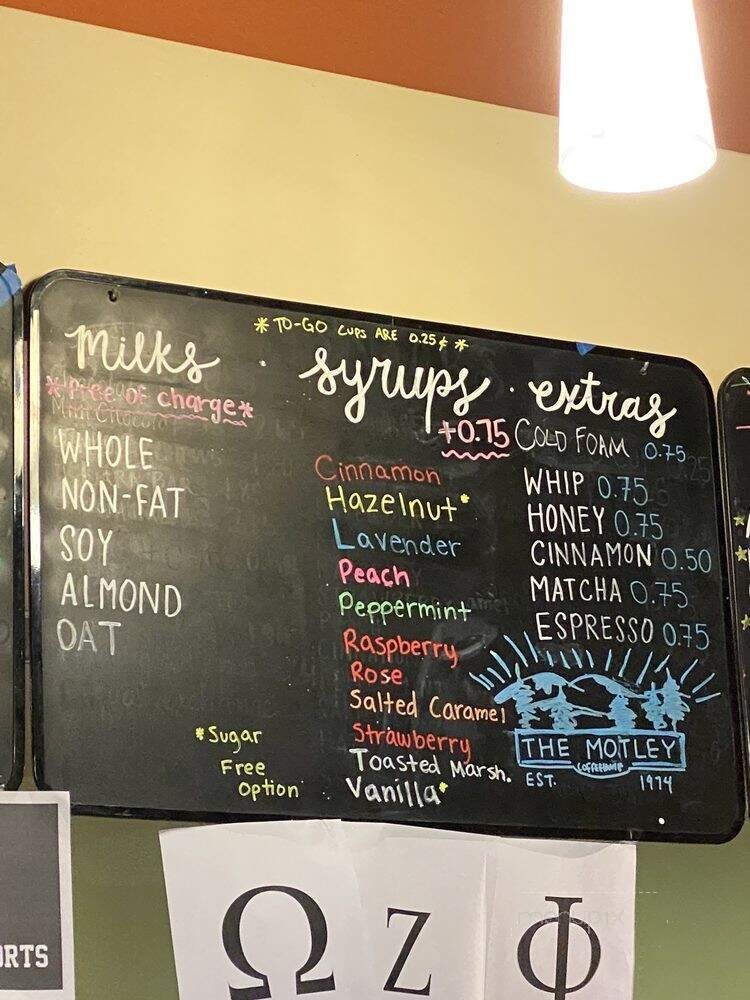 *TO-GO CUPS ARE 0.25¢*
Milks · syrups · extras
*free of charge*
WHOLE
NON-FAT
SOY
ALMOND
OAT
+0.75
Cinnamon
Hazelnut*
Lavender
Peach
Peppermint
Raspberry
Rose
Salted Caramel
Strawberry
Toasted Marsh.
Vanilla*
*Sugar
Free
Option
COLD FOAM 0.75
WHIP 0.75
HONEY 0.75
CINNAMON 0.50
MATCHA 0.75
ESPRESSO 0.75
THE MOTLEY
COFFEEHOUSE
EST. 1974
ORTS
Ω Z Φ